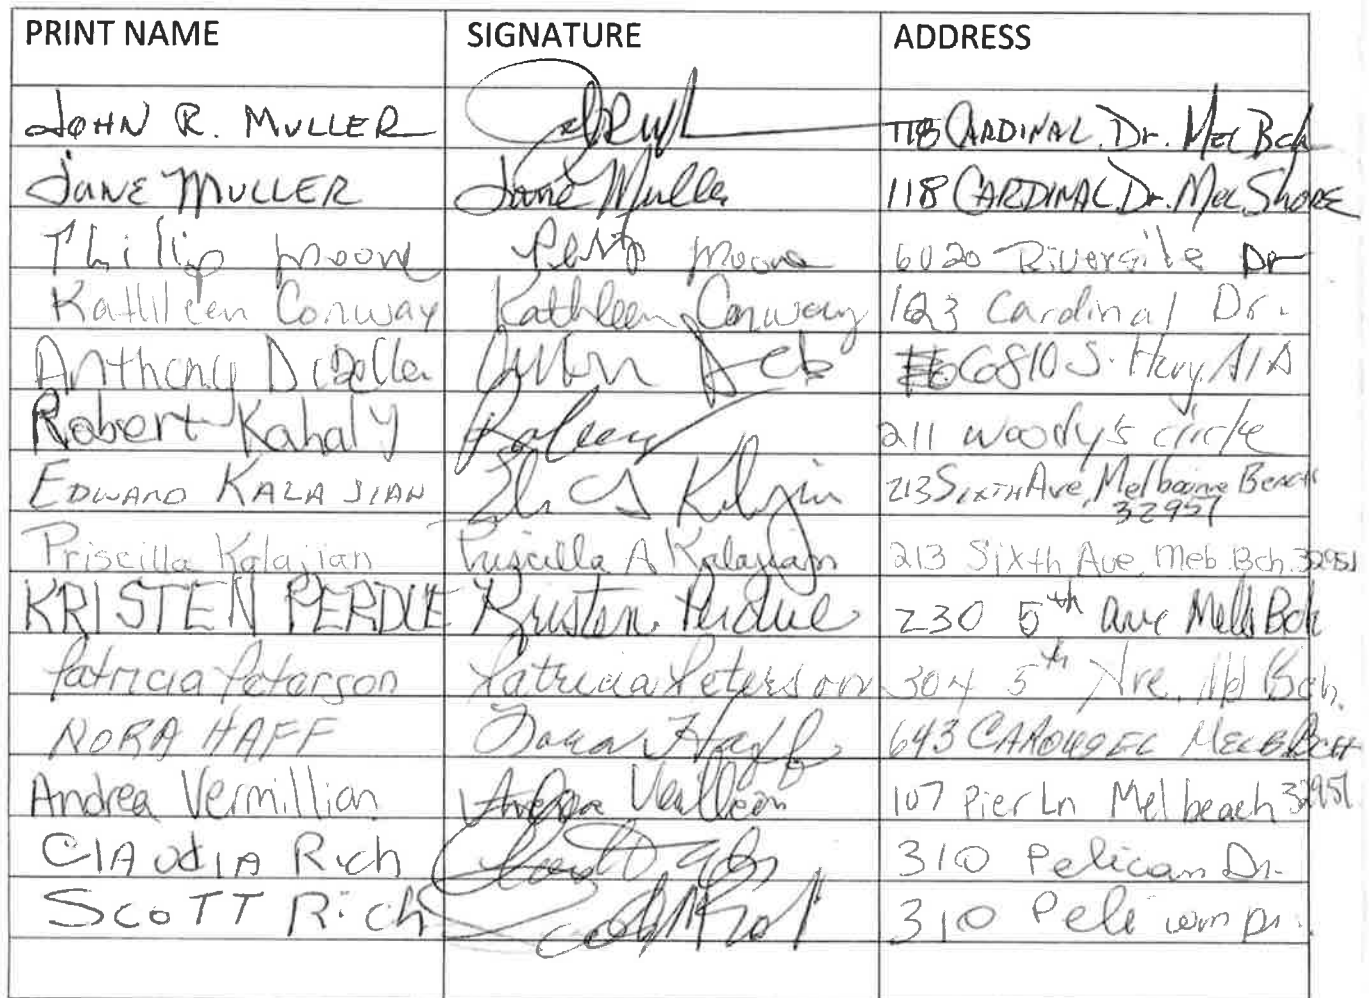 PRINT NAME SIGNATURE ADDRESS
JOHN R. MULLER 118 CARDINAL Dr. MEL Bch
JANE MULLER Jane Muller 118 CARDINAL Dr. Mel Shore
Phillip Moore Phillip Moore 6020 Riverside Dr
Kathleen Conway Kathleen Conway 123 Cardinal Dr.
Anthony 6810 S. Hwy A1A
Robert Kahaly 211 Woody's circle
EDWARD KALAJIAN 213 SIXTH Ave, Melbourne Beach
32951
Priscilla Kalajian Priscilla A Kalajian 213 Sixth Ave, Meb. Bch. 32951
KRISTEN PERDUE Kristen Perdue 230 5th ave Mell Bch
Patricia Peterson Patricia Peterson 304 5th Ave. Mel Bch.
NORA HAFF Nora Haff 643 CAROUSEL MELB BCH
Andrea Vermillian 107 Pier Ln Mel beach 32951
CLAUDIA Rich 310 Pelican Dr.
SCOTT Rich 310 Pelican Dr.